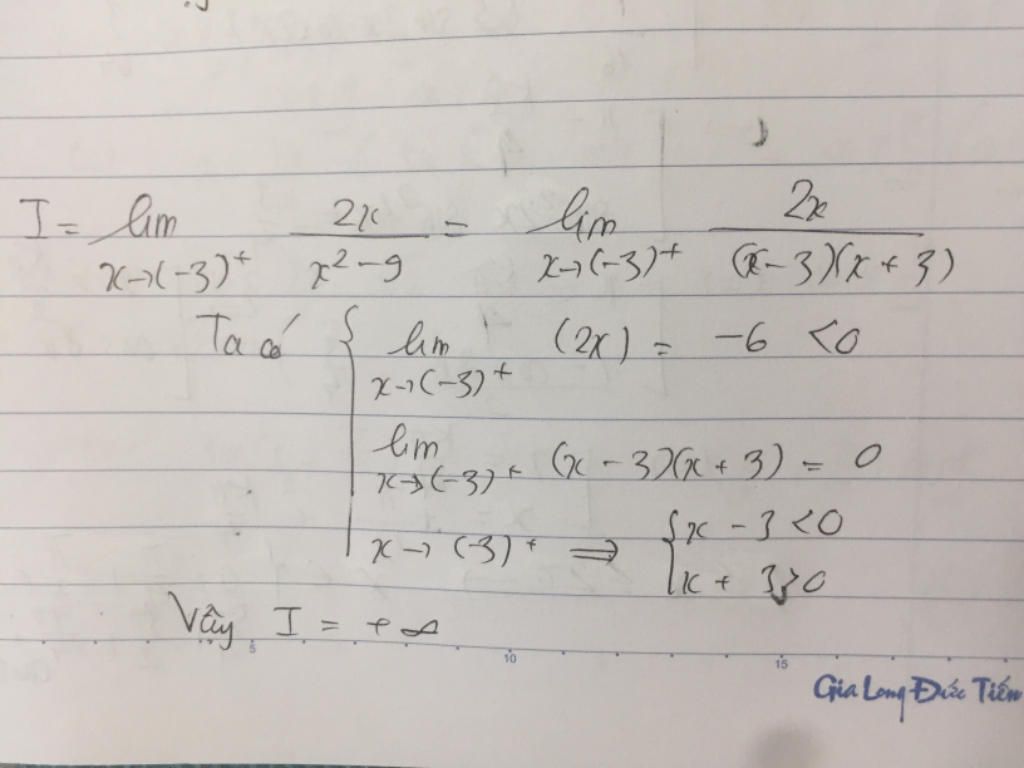 I = lim x→(-3)⁺ 2x / (x² - 9) = lim x→(-3)⁺ 2x / ((x - 3)(x + 3))
Ta có { lim x→(-3)⁺ (2x) = -6 < 0
lim x→(-3)⁺ (x - 3)(x + 3) = 0
x → (-3)⁺ ⟹ { x - 3 < 0
x + 3 > 0
Vậy I = +∞
5 10 15
Gia Long Đức Tiến